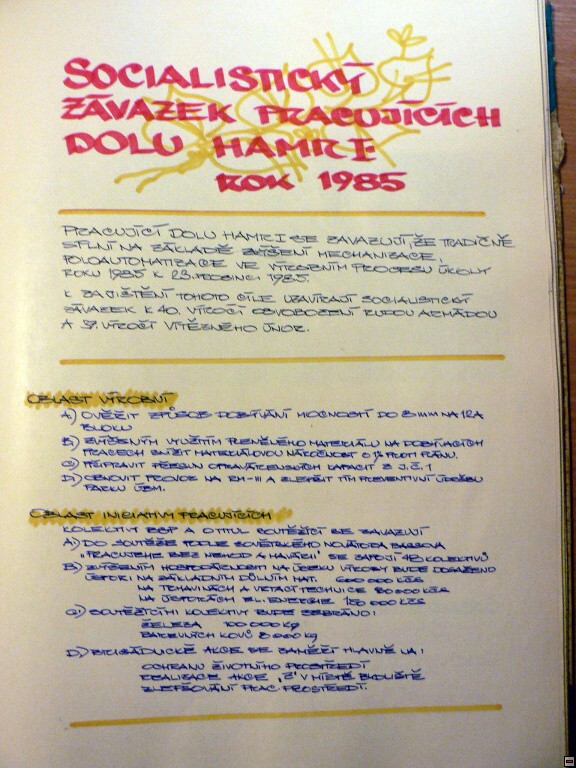 SOCIALISTICKÝ
ZÁVAZEK PRACUJÍCÍCH
DOLU HAMR I.
ROK 1985
PRACUJÍCÍ DOLU HAMR I SE ZAVAZUJÍ, ŽE TRADIČNĚ
SPLNÍ NA ZÁKLADĚ ZVÝŠENÍ MECHANIZACE,
POLOAUTOMATIZACE VE VÝROBNÍM PROCESU ÚKOLY
ROKU 1985 K 23. PROSINCI 1985.
K ZAJIŠTĚNÍ TOHOTO CÍLE UZAVÍRAJÍ SOCIALISTICKÝ
ZÁVAZEK K 40. VÝROČÍ OSVOBOZENÍ RUDOU ARMÁDOU
A 37. VÝROČÍ VÍTĚZNÉHO ÚNOR.
OBLAST VÝROBNÍ
A) OVĚŘIT ZPŮSOB DOBÝVÁNÍ MOCNOSTÍ DO 8 NA 12A
BLOKU
B) ZVÝŠENÝM VYUŽITÍM PLENĚNÉHO MATERIÁLU NA DOBÝVACÍCH
PRACECH SNÍŽIT MATERIÁLOVOU NÁROČNOST O PROTI PLÁNU.
C) PŘIPRAVIT PŘESUN OPRAVÁRENSKÝCH KAPACIT Z J.Č. 1
D) OBNOVIT PROVOZ NA RH-III A ZLEPŠIT TÍM PREVENTIVNÍ ÚDRŽBU
PARKU
OBLAST INICIATIVY PRACUJÍCÍCH
KOLEKTIVY BSP A O TITUL SOUTĚŽÍCÍ SE ZAVAZUJÍ
A) DO SOUTĚŽE PODLE SOVĚTSKÉHO NOVÁTORA BASOVA
„PRACUJEME BEZ NEHOD A HAVÁRIÍ" SE ZAPOJÍ 48 KOLEKTIVŮ
B) ZVÝŠENÍM HOSPODÁRNOSTI NA ÚSEKU VÝROBY BUDE DOSAŽENO
ÚSPOR: NA ZÁKLADNÍM DŮLNÍM MAT. 600 000 KČS
NA TRHAVINÁCH A VRTACÍ TECHNICE 80 000 KČS
NA ÚSPORÁCH EL. ENERGIE 150 000 KČS
C) SOUTĚŽÍCÍMI KOLEKTIVY BUDE SEBRÁNO:
ŽELEZA 100 000 KG
BAREVNÝCH KOVŮ 8 000 KG
D) BRIGÁDNICKÉ AKCE SE ZAMĚŘÍ HLAVNĚ NA:
OCHRANU ŽIVOTNÍHO PROSTŘEDÍ
REALIZACE AKCE „Z" V MÍSTĚ BYDLIŠTĚ
ZLEPŠOVÁNÍ PRAC. PROSTŘEDÍ.